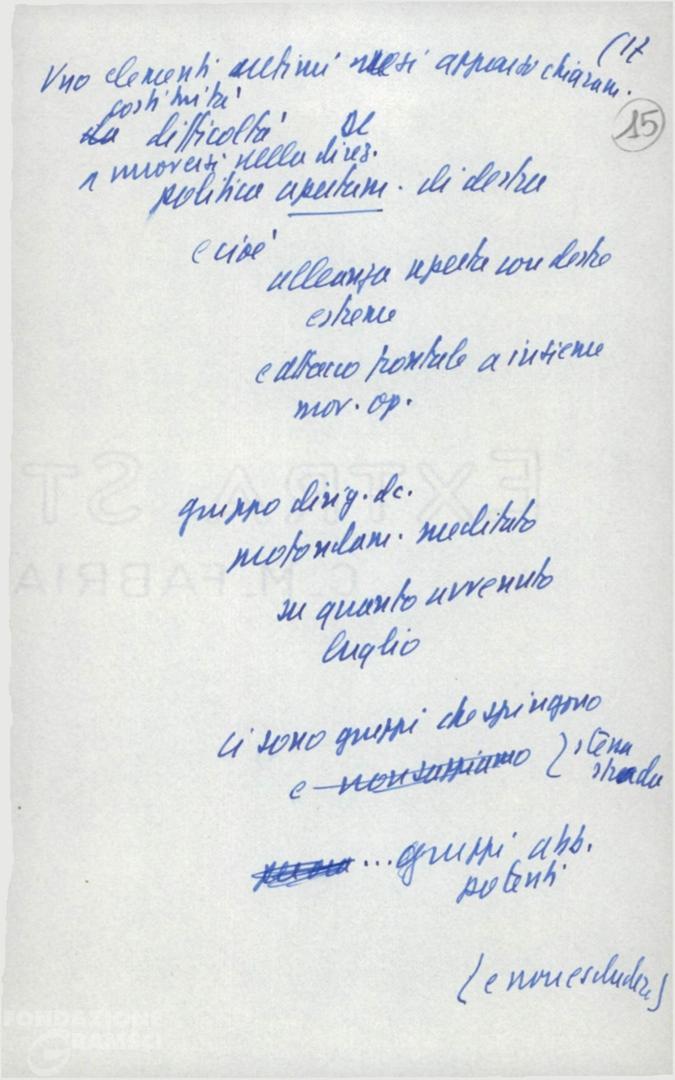 (17
Uno elementi ultimi mesi apparso chiaram.
15
costituita
da difficoltà DC
a muoversi nella direz.
politica apertam. di destra
e cioè
alleanza aperta con destre
estreme
e attacco frontale a insieme
mov. op.
gruppo dirig. dc.
profondam. meditato
su quanto avvenuto
luglio
ci sono gruppi che spingono
e non sappiamo (stessa
strada
... gruppi abb.
potenti
(e non escludere)
EXTRA ST
C.M. FABRIA
FONDAZIONE
GRAMSCI